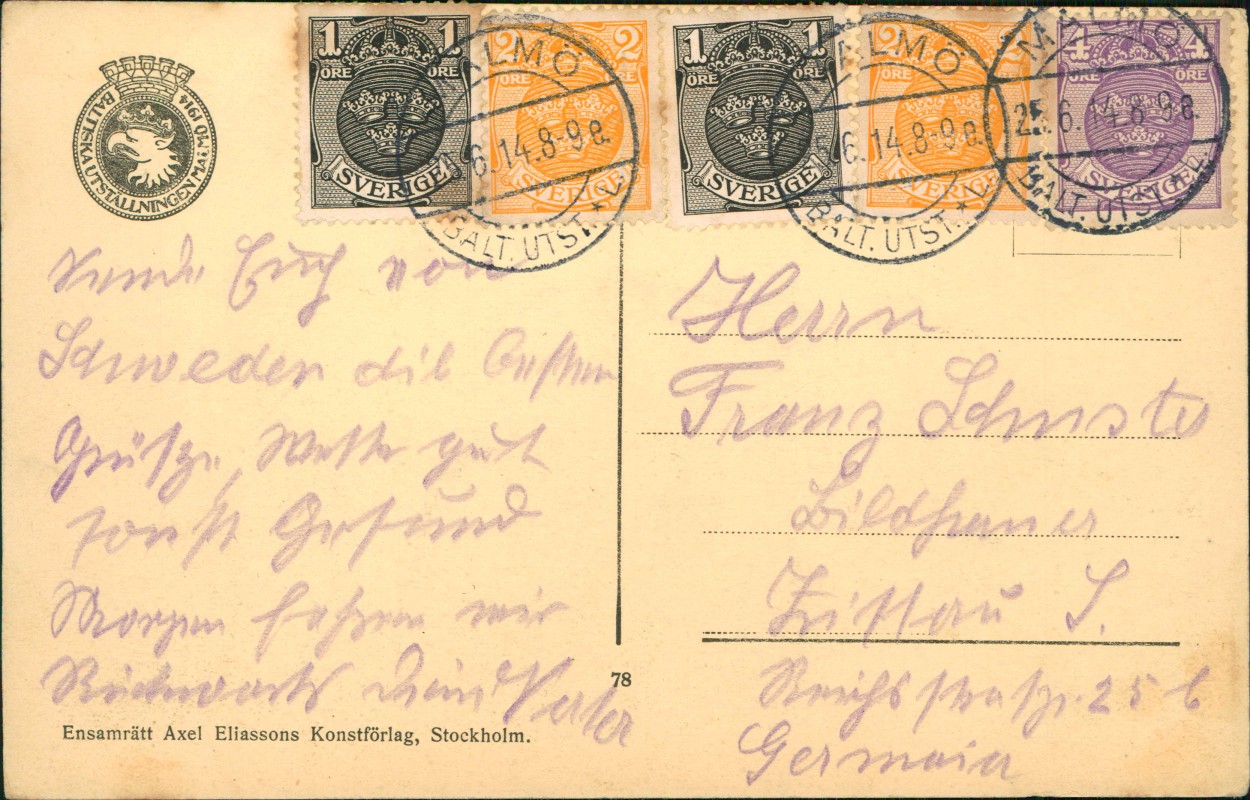 BALTISKA UTSTÄLLNINGEN MALMÖ 1914
1 1 ÖRE ÖRE SVERIGE
2 2 SVERIGE
1 1 ÖRE ÖRE SVERIGE
2 SVERIGE
4 4 ÖRE ÖRE SVERIGE
MALMÖ 6.14.8-9 e. BALT. UTST.
MALMÖ 6.14.8-9 e. BALT. UTST.
MALMÖ 25.6.14.8-9 e. BALT. UTST.
Sende Euch von
Schweden die besten
Grüße, Wetter gut
sonst Gesund
Morgen fahren wir
Rückwärts Dein Vater
Herrn
Franz Schuster
Bildhauer
Zittau S.
Reichsstraße 25 b
Germania
78
Ensamrätt Axel Eliassons Konstförlag, Stockholm.